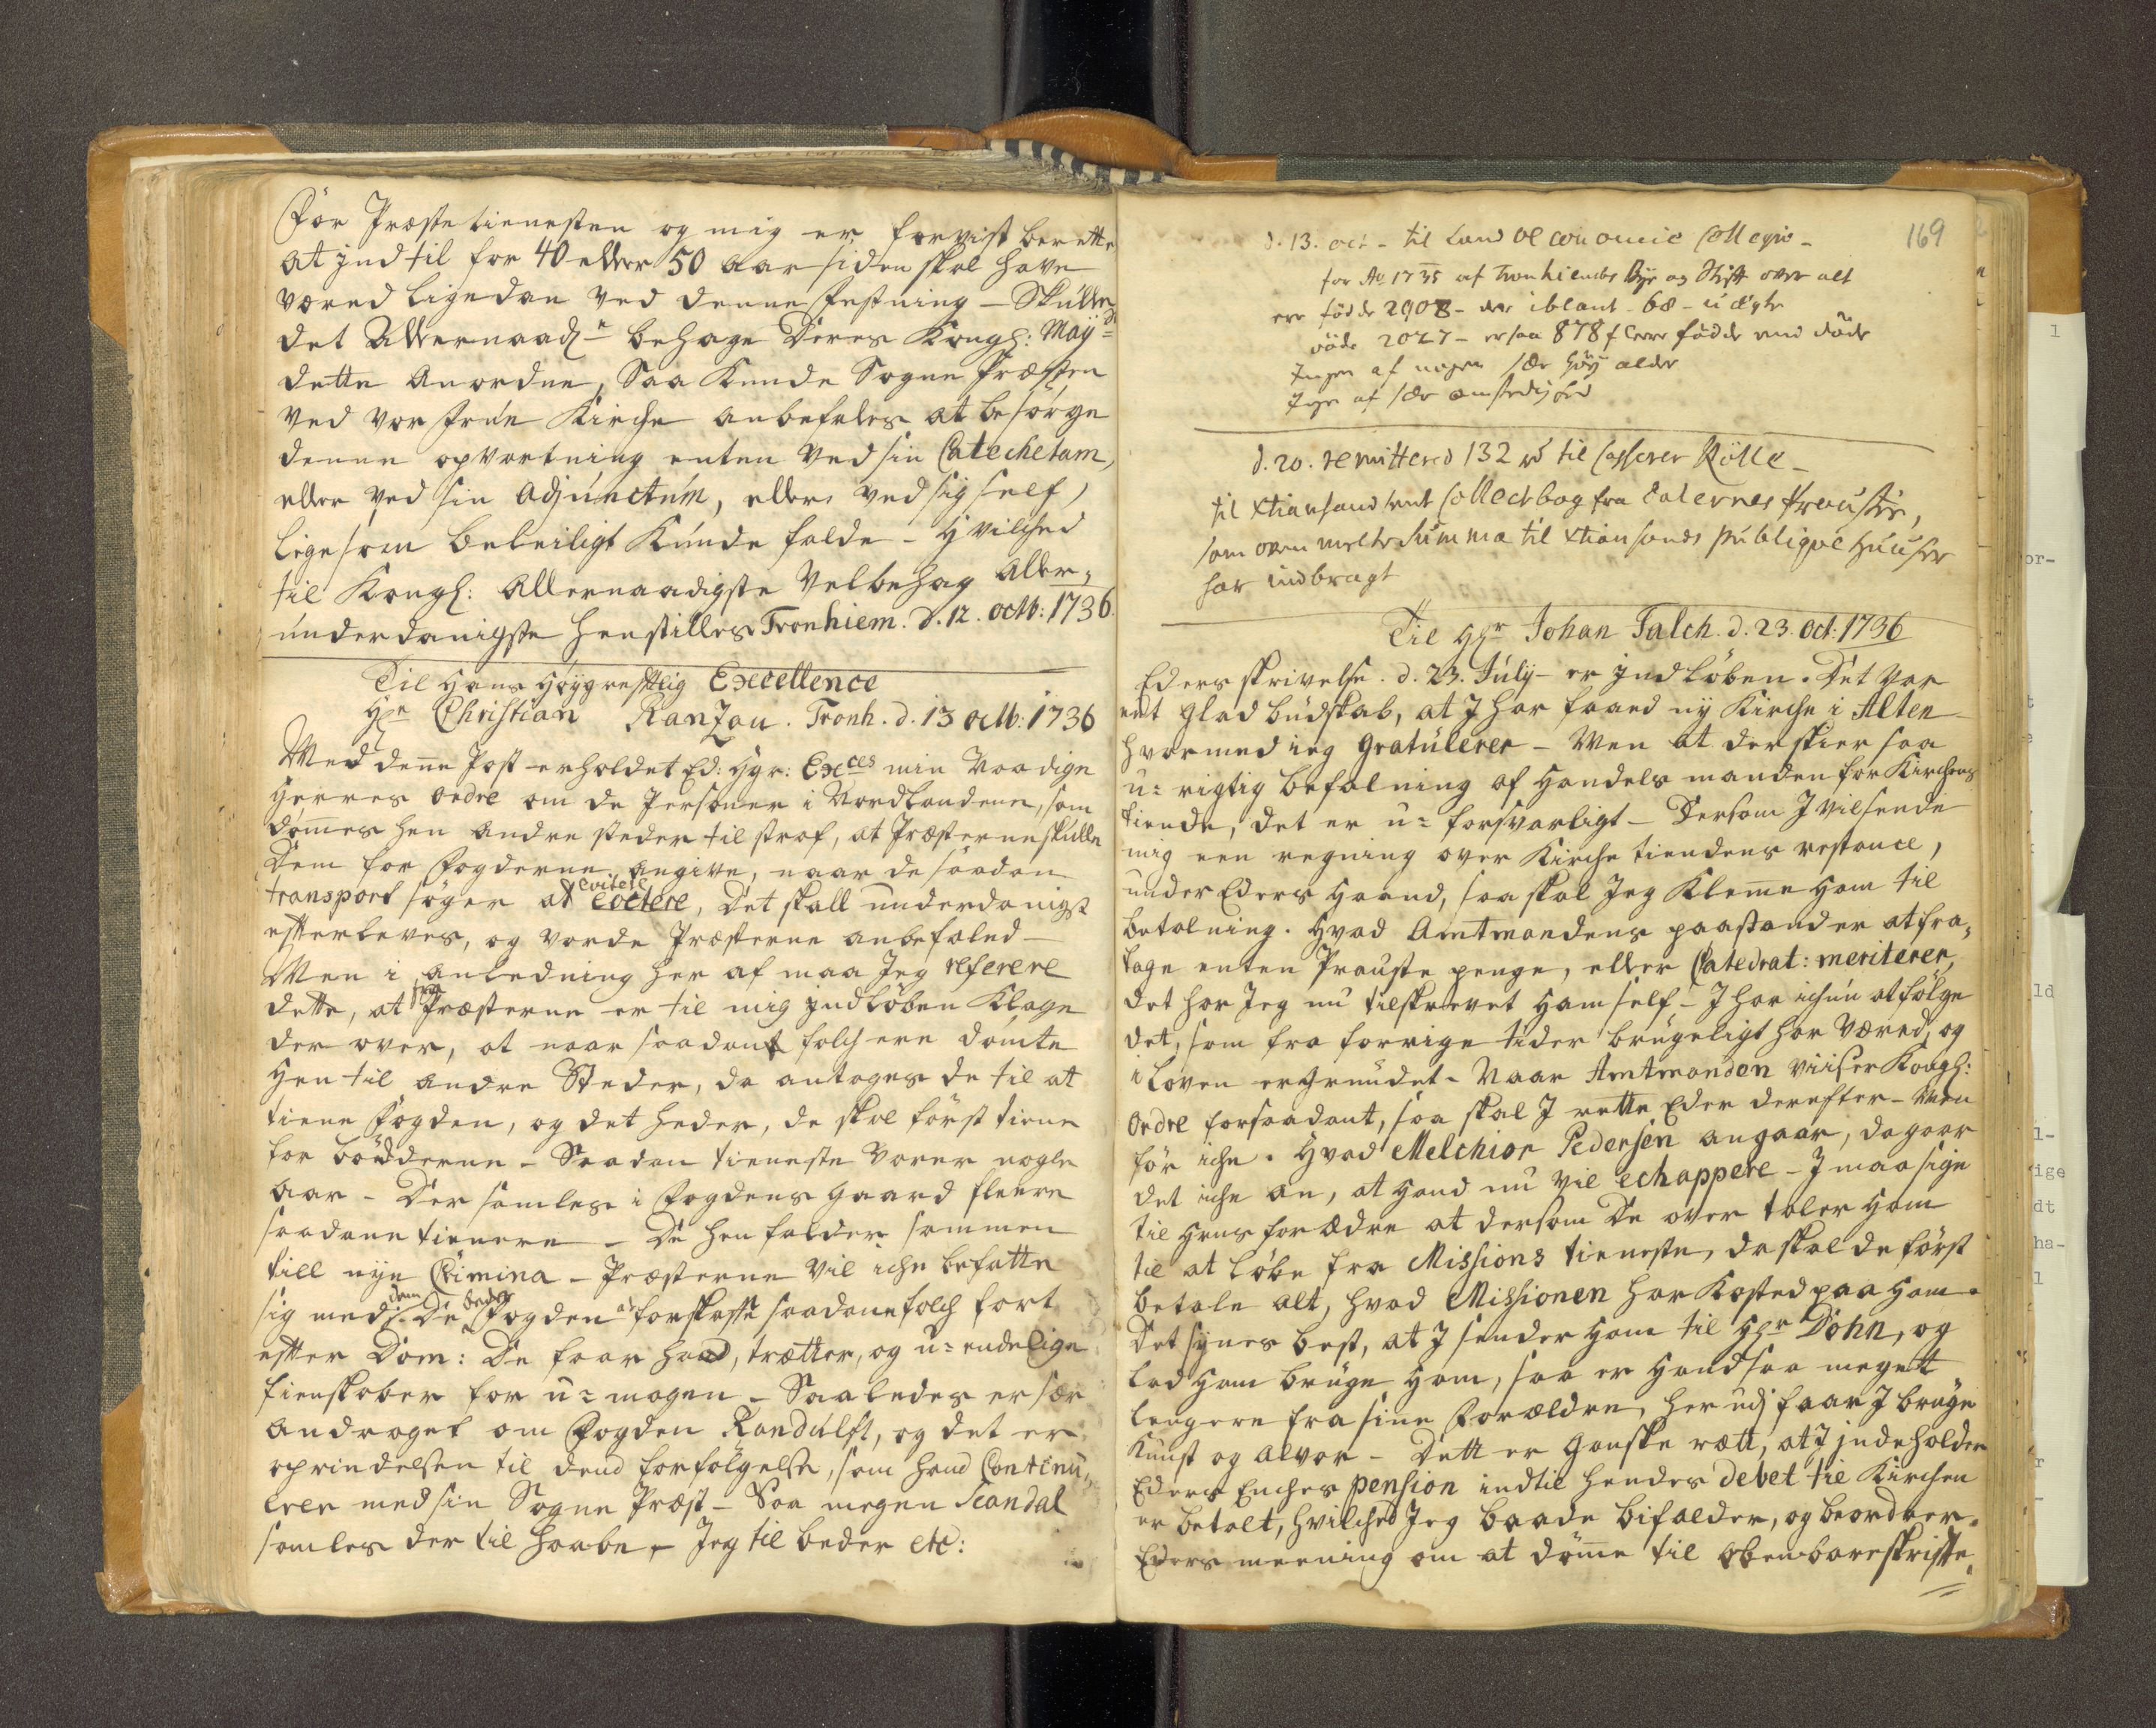 For Præstetienesten og mig er forvist berette
at ind til for 40 eller 50 aar siden skal have
væred ligedan ved denne Festning - Skulle
det Allernaadste behage Deres Kongl: Mayts
dette Anordne, Saa Kunde Sogne Præsten
ved vor Frue Kirche anbefales at besørge
denne opvartning enten ved sin Catechetam,
eller ved sin Adjunctum, eller ved sig self,
lige som beleiligt Kunde falde - Hvilched
til Kongl: Allernaadigste Velbehag Aller¬
underdanigste henstilles Tronhiem. d. 12. octb: 1736.
Til Hans Høygrefflig Excellence
Hr Christian Ranzau. Tronh. d. 13 octb: 1736
Med denne Post erholdet Ed: Hgr: Exces min Naadige
Herres ordre om de Personer i Nordlandene, som
dømes hen andre steder til straf, at Præsterne skulle
Dem for Fogderne angive, naar de saadan
transport søger at evitere, Det skall underdanigst
efterleves, og vorde Præsterne anbefaled -
Men i anledning her af maa Jeg referere
dette, at fra Præsterne er til mig indløben Klage
der over, at naar saadant folch ere dømte
hen til andre Steder, da antages de til at
tiene Fogden, og det heder, de skal først tiene
for bøderne - Saadan tieneste varer nogle
aar - Der samles i Fogdens gaard fleere
saadane tienere - De henfalder sammen
till nye Crimina - Præsterne vil iche befatte
sig med dem. De beder Fogden at forskaffe saadane folch fort
efter Dom: De faar had, trætter, og u=endelige
fienskaber for u=magen - Saaledes er sær
andraget om Fogden Randulft, og det er
oprindelsen til dend forfølgelse, som hand Continu¬
erer med sin Sogne Præst - Saa megen Scandal
samles der til haabe - Jeg til beder etc:
169
d. 13. oct - til Land Oeconomie Collegio -
for Ao 1735 af Tronhiembs Bye og Stift over alt
ere fødde 2908 - der iblant 68 - u ægte
døde 2027 - er saa 878 flere fødde end døde
Ingen af nogen sær høy alder
Ingen af sær omstedighed
d. 20. remittered 132 rd til Casserer Rølle -
til Xtiansand sent Collectbog fra Dalernes Proustie,
som oven melte Summa til Xtiansands publique Huuser
har indbragt
Til Hr Johan Falch. d. 23. Oct: 1736
Eders skrivelse. d. 23. July - er indløben. Det var
eet glad budskab, at I har faaed ny Kirche i Alten
hvormed ieg gratulerer - Men at der skier saa
u=rigtig befalning af Handels manden for Kirchens
tiende, det er u=forsvarligt - Dersom I vil sende
mig een regning over Kirche tiendens restance,
under Eders haand, saa skal Jeg Klemme ham til
betalning. Hvad Amtmandens paastand er at fra¬
tage enten Prouste penge, eller Catedrat: meriterer,
det har Jeg nu tilskrevet ham self - I har ichun at følge
det, som fra forrige tider brugeligt har væred, og
i Loven er grundet - Naar Amtmanden viiser Kongl:
Ordre for saadant, saa skal I rette Eder derefter - Men
før iche. Hvad Melchior Pedersen angaar, da gaar
det iche an, at Hand nu vil echappere - I maa sige
til Hans forældre at dersom De over taler ham
til at løbe fra Missions tieneste, da skal de først
betale alt, hvad Missionen har Kosted paa ham.
Det synes best, at I sender ham til Hr Døhn, og
lad ham bruge ham, saa er Hand saa meget
lengere fra sine Forældre, her udj faar I bruge
Kunst og alvor - Dett er ganske rett, at I indeholder
Eders Enches pension indtil hendes debet til Kirchen
er betalt, hvilched Jeg baade bifalder, og beordrer.
Eders meening om at døme til Obenbare skrifte¬